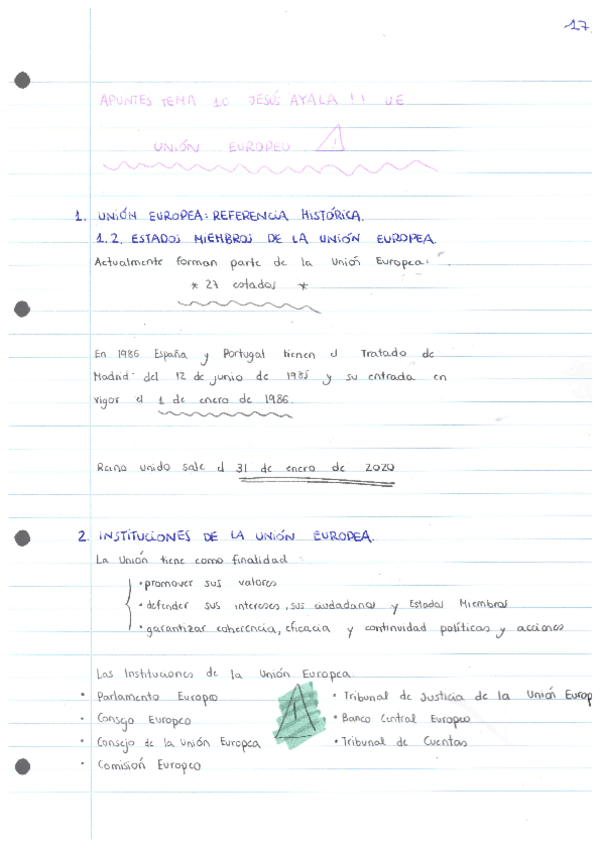 17
APUNTES TEMA 10 JESÚS AYALA !! UE
UNIÓN EUROPEU
1. UNIÓN EUROPEA: REFERENCIA HISTÓRICA.
1.2. ESTADOS MIEMBROS DE LA UNIÓN EUROPEA
Actualmente forman parte de la Unión Europea:
* 27 estados *
En 1986 España y Portugal tienen el Tratado de
Madrid del 12 de junio de 1985 y su entrada en
vigor el 1 de enero de 1986.
Reino unido sale el 31 de enero de 2020
2. INSTITUCIONES DE LA UNIÓN EUROPEA.
La Unión tiene como finalidad:
• promover sus valores
• defender sus intereses, sus ciudadanos y Estados Miembros
• garantizar coherencia, eficacia y continuidad políticas y acciones
Las Instituciones de la Unión Europea.
• Parlamento Europeo
• Tribunal de Justicia de la Unión Europ
• Consejo Europeo
• Banco Central Europeo
• Consejo de la Unión Europea
• Tribunal de Cuentas
• Comisión Europeo